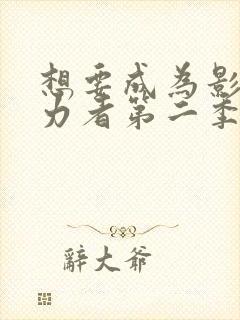 想要成为影
力者第二季
辞大爷